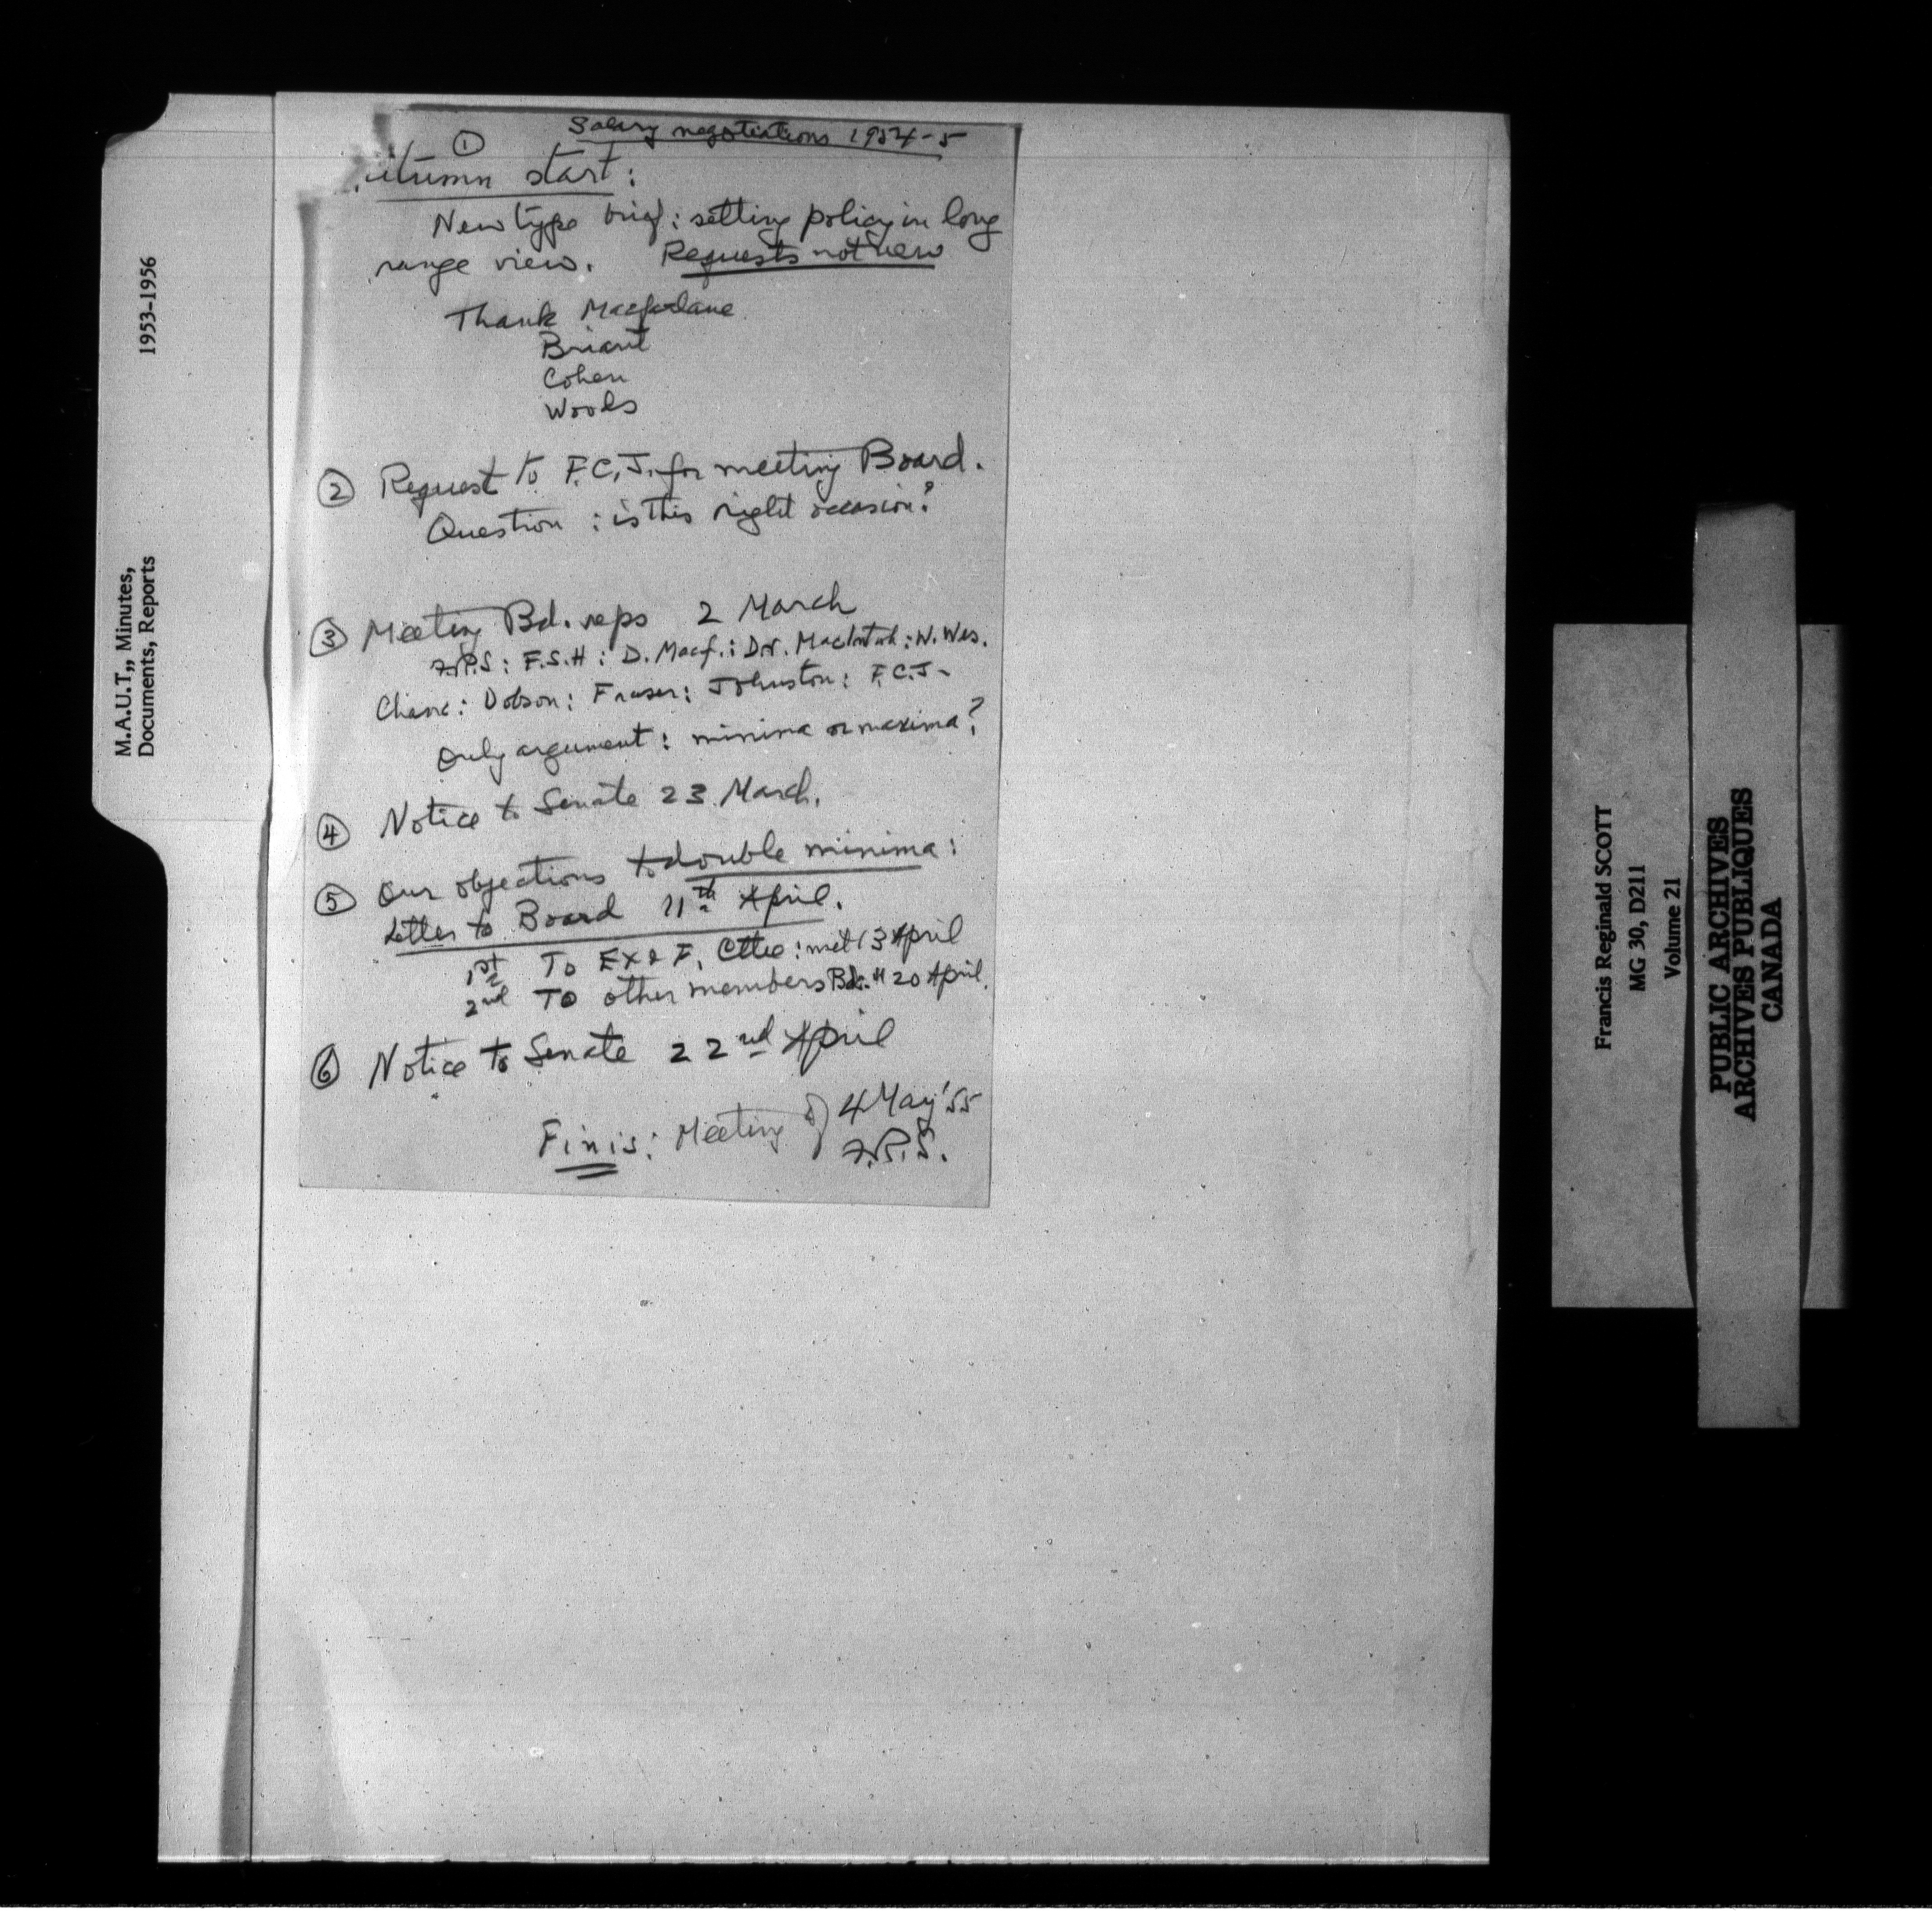 Salary negotiations 1954-5
①
utumn start:
New type brief: setting policy in long
range view. Requests not new
Thank Macfarlane
Briant
Cohen
Woods
② Request to F.C.J. for meeting Board.
Question: is this right occasion?
③ Meeting Bd. reps 2 March
F.R.S: F.S.H: D. Macf.: Dr. MacIntosh: W. Wes.
Chanc: Dobson: Fraser: Johnston: F.C.J-
Only argument: minima or maxima?
④ Notice to Senate 23 March.
⑤ Our objections to double minima:
Letter to Board 11th April.
1st To Ex & F. Cttee: met 13 April
2nd To other members Bd. " 20 April.
⑥ Notice to Senate 22nd April
Finis: Meeting of 4 May '55
F.R.S.
M.A.U.T., Minutes, 1953-1956
Documents, Reports
Francis Reginald SCOTT
MG 30, D211
Volume 21
PUBLIC ARCHIVES
ARCHIVES PUBLIQUES
CANADA